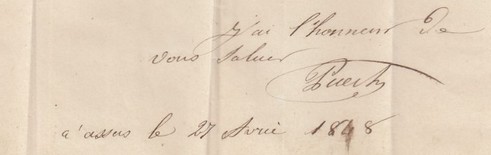 j'ai l'honneur de
vous saluer
Puech
a' assas le 27 Avril 1848